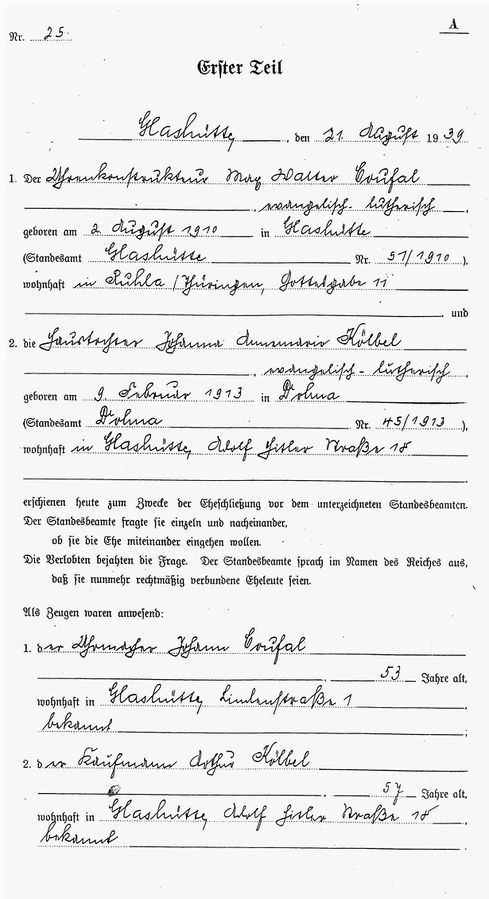 A
Nr. 25.
Erster Teil
Glashütte, den 21. August 1939
1. Der Uhrenkonstrukteur Max Walter Coufal
, evangelisch-lutherisch,
geboren am 2. August 1910 in Glashütte
(Standesamt Glashütte Nr. 51/1910),
wohnhaft in Ruhla/Thüringen, Gottesgabe 11
, und
2. die Haustochter Johanna Annemarie Kölbel
, evangelisch-lutherisch,
geboren am 9. Februar 1913 in Dohna
(Standesamt Dohna Nr. 45/1913),
wohnhaft in Glashütte, Adolf Hitler Straße 18
erschienen heute zum Zwecke der Eheschließung vor dem unterzeichneten Standesbeamten.
Der Standesbeamte fragte sie einzeln und nacheinander,
ob sie die Ehe miteinander eingehen wollen.
Die Verlobten bejahten die Frage. Der Standesbeamte sprach im Namen des Reiches aus,
daß sie nunmehr rechtmäßig verbundene Eheleute seien.
Als Zeugen waren anwesend:
1. der Uhrmacher Johann Coufal
, 53 Jahre alt,
wohnhaft in Glashütte, Lindenstraße 1
bekannt ;
2. der Kaufmann Arthur Kölbel
, 57 Jahre alt,
wohnhaft in Glashütte, Adolf Hitler Straße 18,
bekannt .